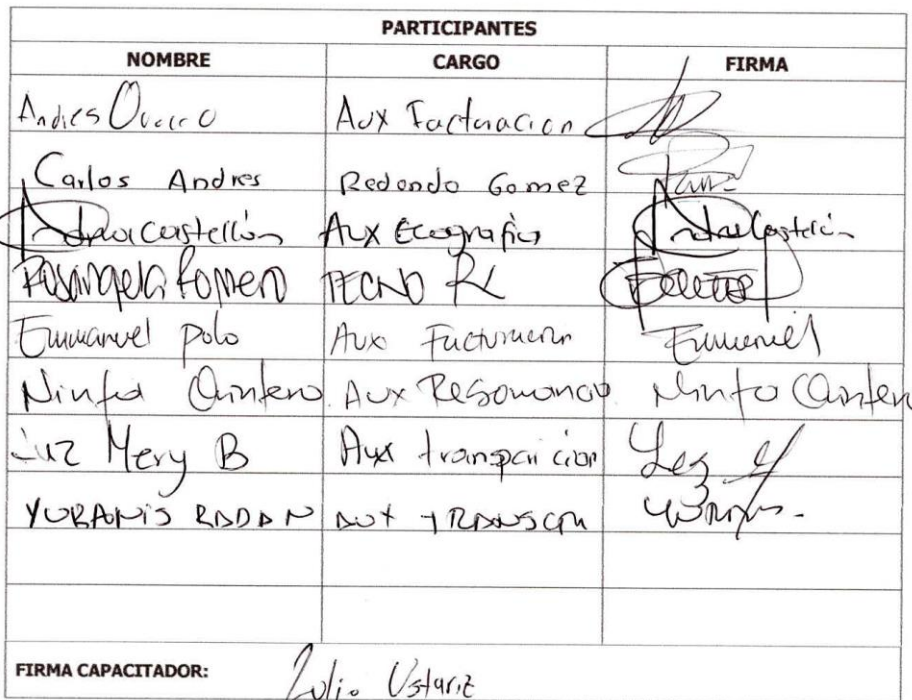 PARTICIPANTES
NOMBRE CARGO FIRMA
Andres Aux Facturacion
Carlos Andres Redondo Gomez
Castellón Aux Ecografia Castellón
Rosangela Romero TECNO RX
Emmanuel Polo Aux Facturacion Emmanuel
Ninfa Quintero Aux Resonancia Ninfa Quintero
Luz Mery B Aux
YURANIS AUX
FIRMA CAPACITADOR: Julio Ustariz